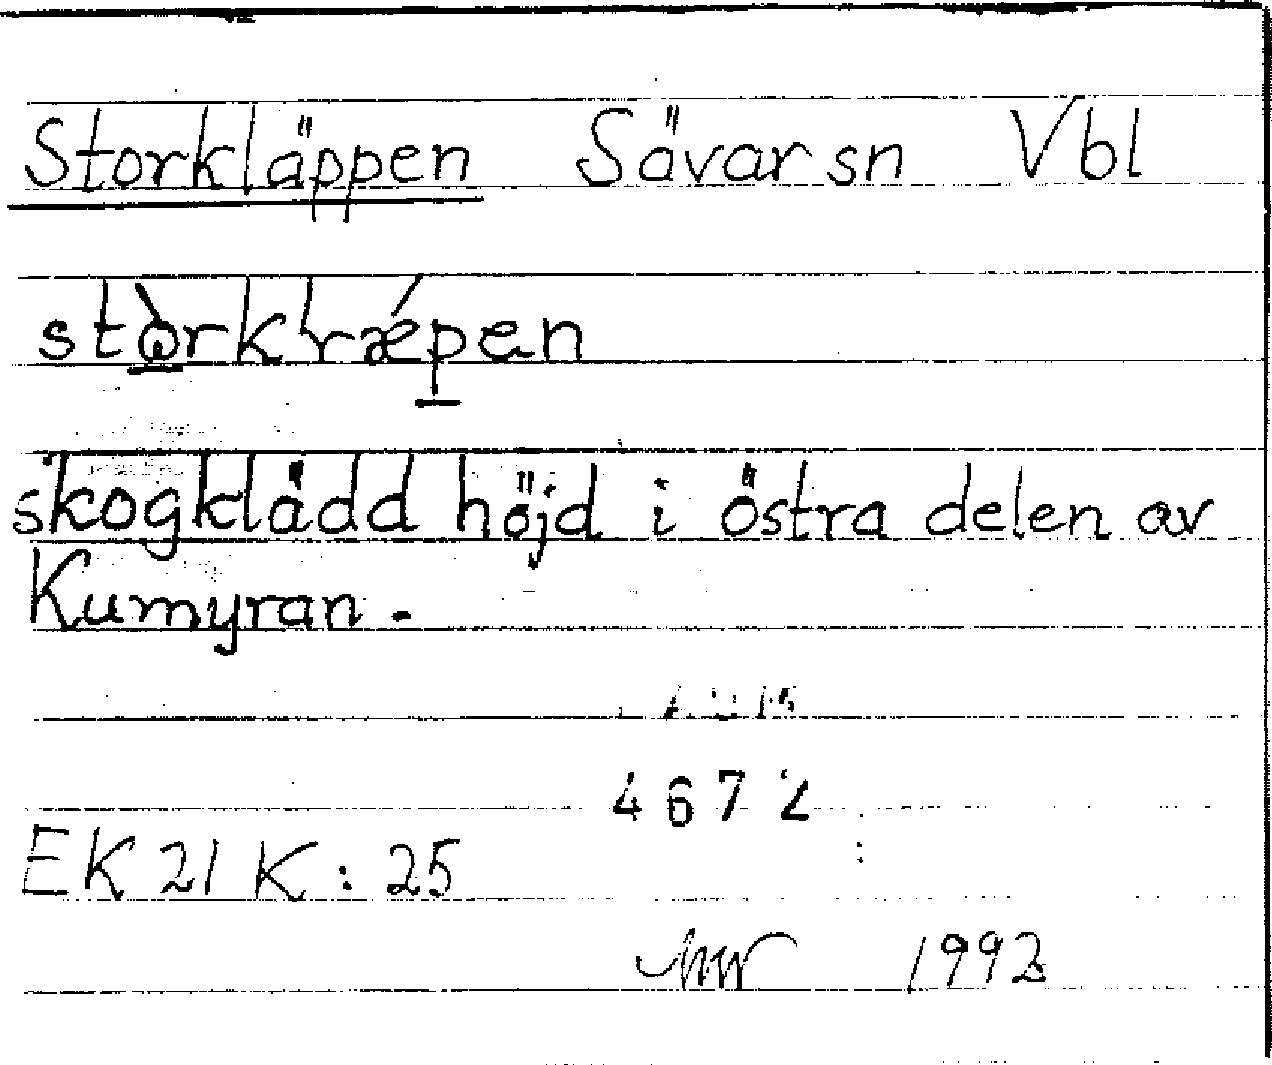 Storkläppen Sävar sn Vbl
skogklädd höjd i östra delen av
Kumyran.
4672
EK 21 K: 25
1992